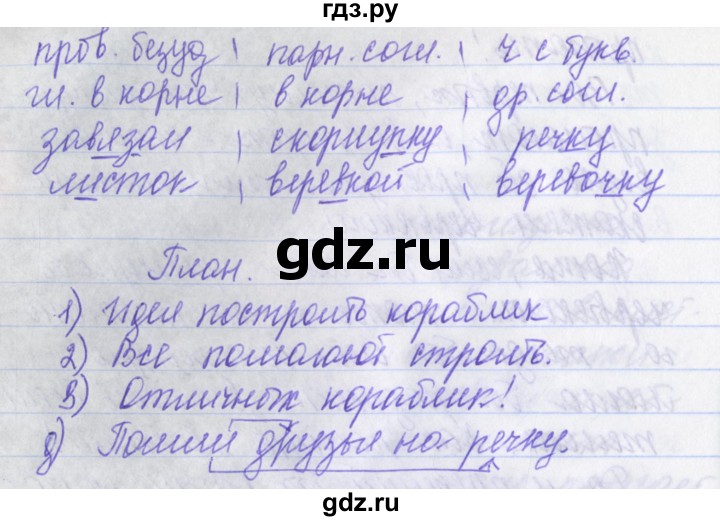 гдз.ру
пров. безуд | парн. согл. | ч с букв.
гл. в корне | в корне | др. согл.
завязал | скорлупку | речку
листок | веревкой | веревочку
gdz.ru
План.
1) Идея построить кораблик
2) Все помогают строить.
3) Отличных кораблик!
д) Пошли друзья на речку.
gdz.ru